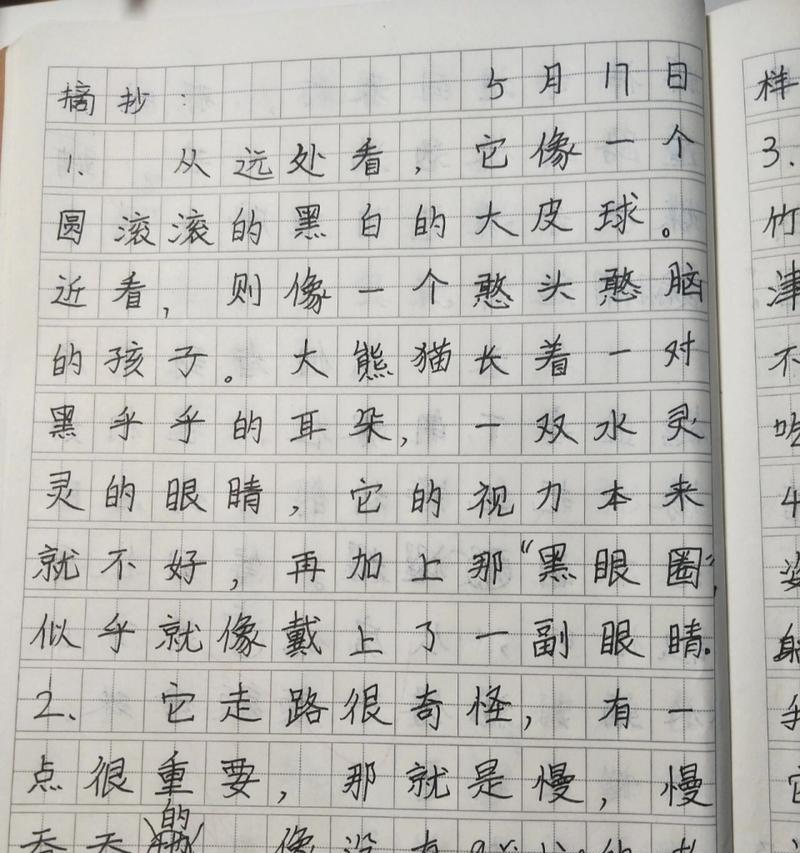 摘抄： 5月17日
1、 从远处看，它像一个
圆滚滚的黑白的大皮球。
近看，则像一个憨头憨脑
的孩子。大熊猫长着一对
黑乎乎的耳朵，一双水灵
灵的眼睛，它的视力本来
就不好，再加上那“黑眼圈”，
似乎就像戴上了一副眼睛。
2、 它走路很奇怪，有一
点很重要，那就是慢，慢
的
像没有
样
3、
竹
津
不
吃
4
姿
身
我
它